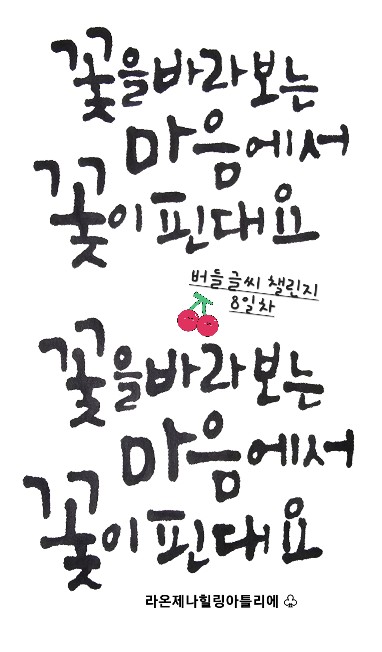 꽃을바라보는
마음에서
꽃이핀대요
버들글씨 챌린지
8일차
꽃을바라보는
마음에서
꽃이핀대요
라온제나힐링아틀리에 ♧